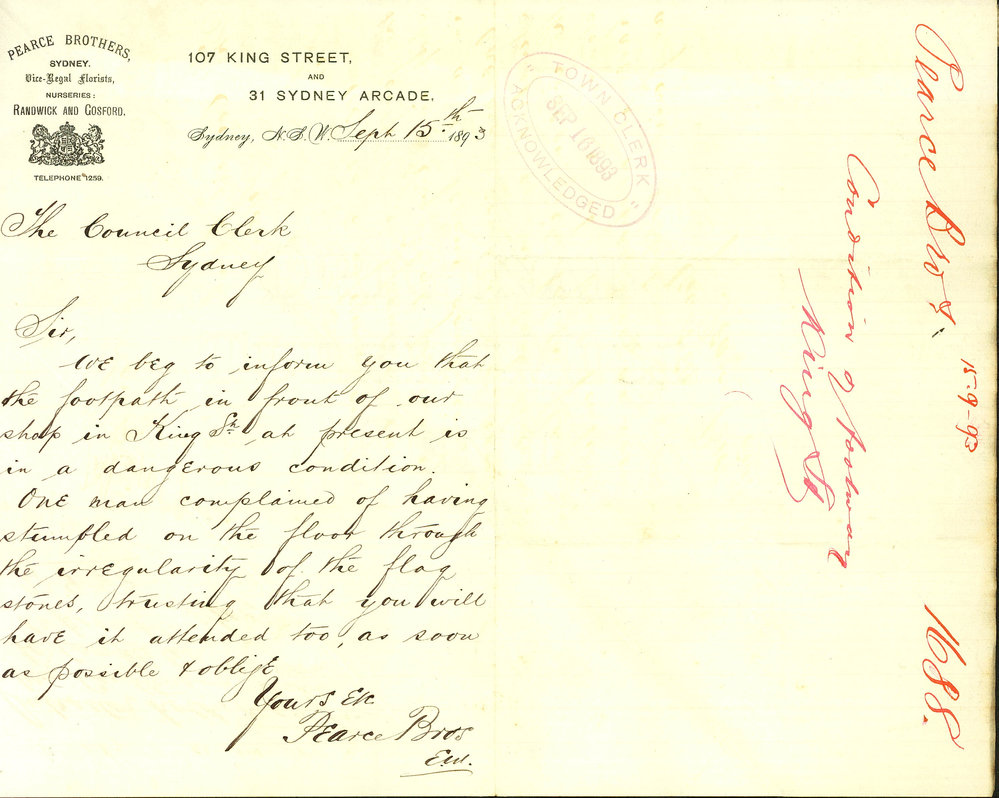 PEARCE BROTHERS,
SYDNEY.
Vice-Regal Florists,
NURSERIES:
RANDWICK AND GOSFORD.
TELEPHONE 1259.
107 KING STREET,
AND
31 SYDNEY ARCADE.
Sydney, N.S.W. Sept 15th 1893
TOWN CLERK
SEP 16 1893
ACKNOWLEDGED
The Council Clerk
Sydney
Sir,
We beg to inform you that
the footpath in front of our
shop in King St at present is
in a dangerous condition.
One man complained of having
stumbled on the floor through
the irregularity of the flag
stones, trusting that you will
have it attended too, as soon
as possible & oblige
Yours Etc
Pearce Bros
E.W.
Pearce Bros.
15-9-93
1688.
Condition of footway
King St